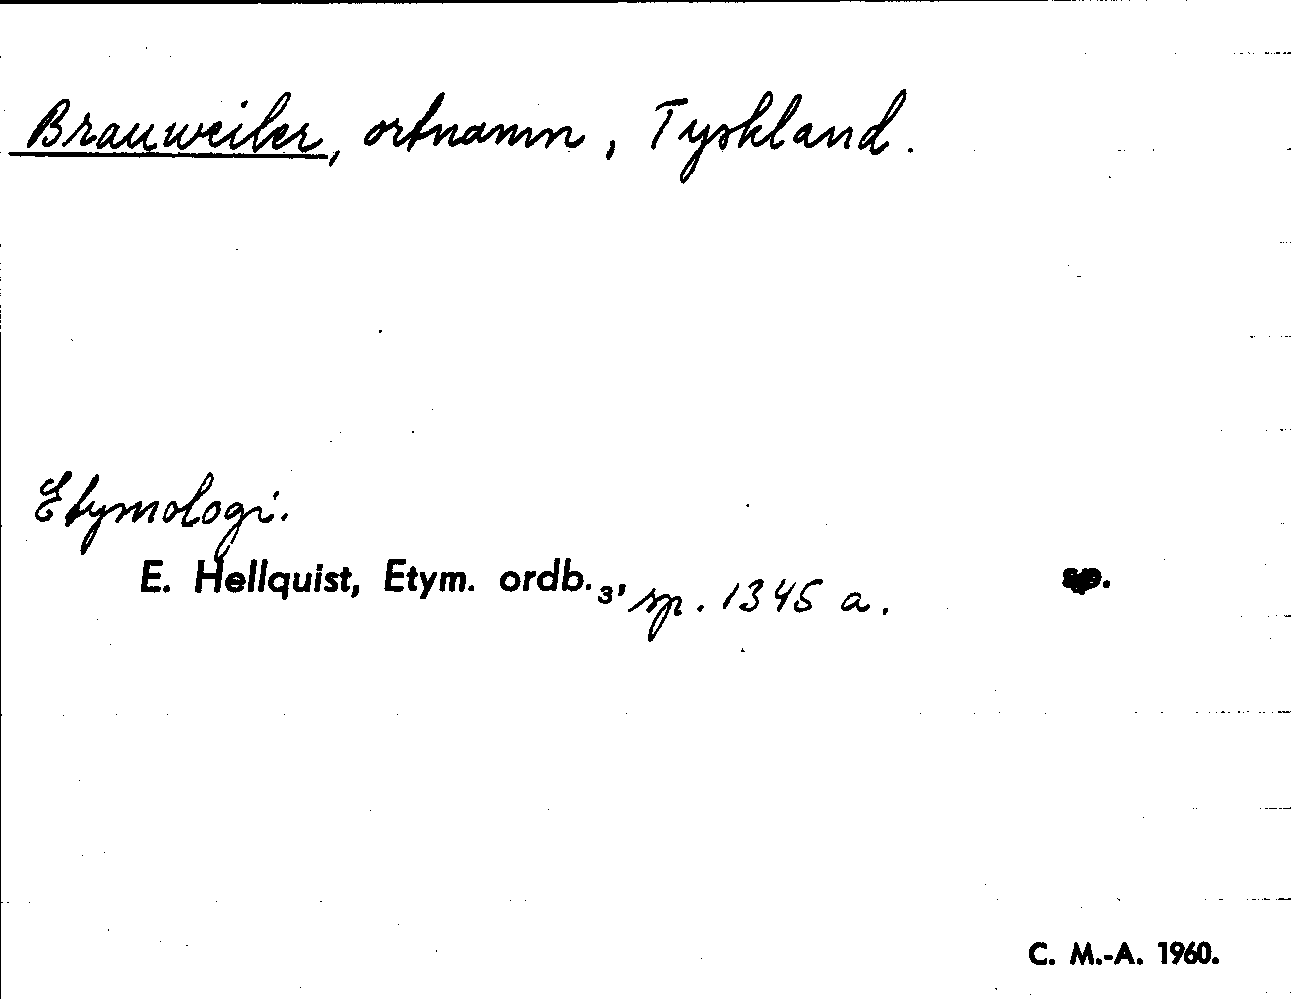 Brauweiler, ortnamn, Tyskland.
Etymologi.
E. Hellquist, Etym. ordb. 3, sp. 1345 a. sp.
C. M.-A. 1960.